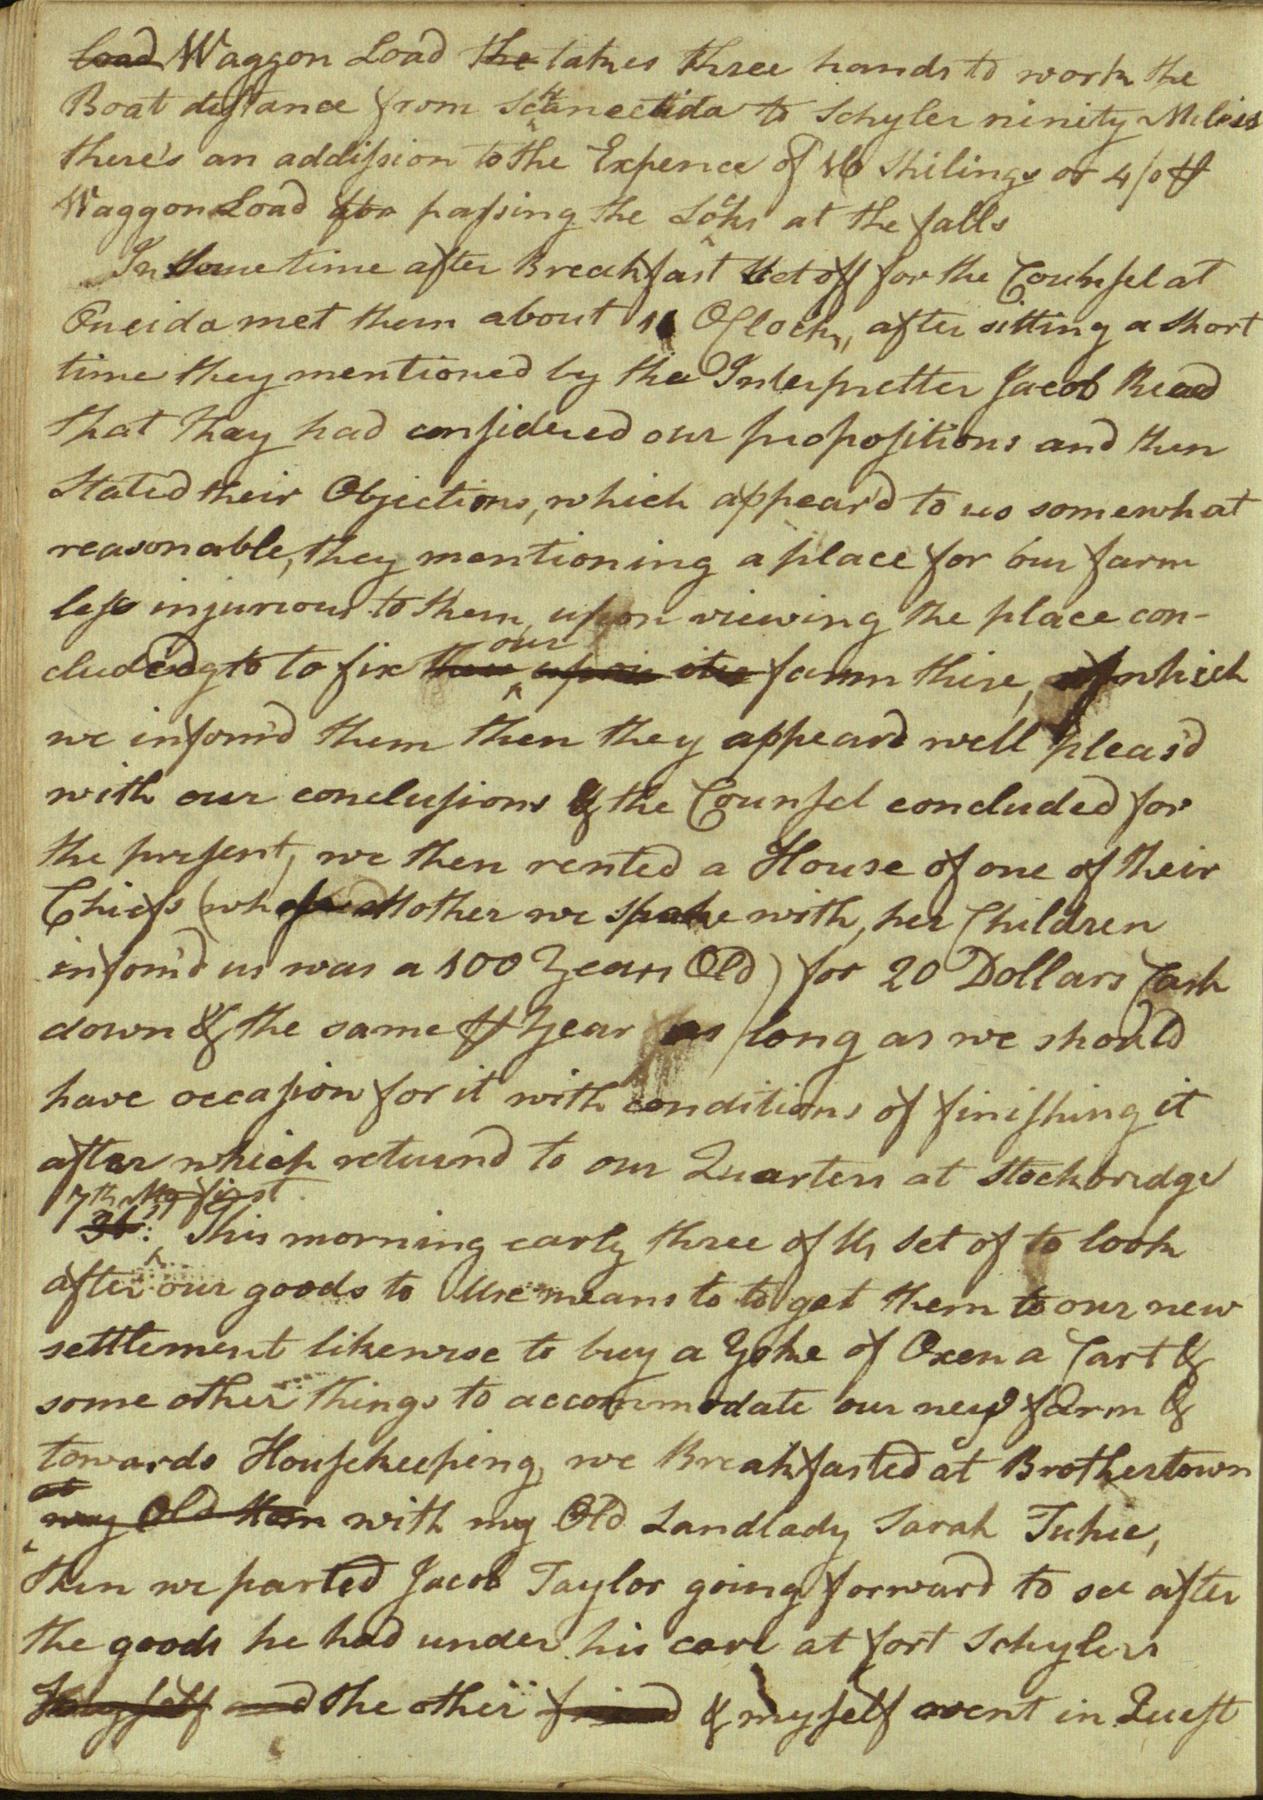 load Waggon Load the takes three hands to work the
Boat distance from Scanectida to Schyler ninity Miless
there's an addission to the Expence of 16 Shilings or 4/0 ⅌
Waggon Load for passing the Locks at the falls
In some time after Breakfast set off for the Counsel at
Oneida met them about 11 OClock, after sitting a short
time they mentioned by the Interpretter Jacob Read
that thay had considered our propositions and then
stated their Objections, which appear'd to us somewhat
reasonable, they mentioning a place for our farm
less injurious to them, upon viewing the place con-
cluded to to fix our upon it farm thire, of which
we infom'd them then they appeard well pleas'd
with our conclusions & the Counsel concluded for
the present, we then rented a House of one of their
Chiefs (whose Mother we spake with, her Children
infom'd us was a 100 Years Old) for 20 Dollars Cash
down & the same ⅌ Year as long as we should
have occasion for it with conditions of finishing it
after which returnd to our Quarters at Stockbridge
7th Mo first
31: This morning early three of us set of to look
after our goods to Use means to to get them to our new
settlement likewise to buy a Yoke of Oxen a Cart &
some other things to accommodate our new farm &
towards Housekeeping, we Breakfasted at Brothertown
at
my Old with my Old Landlady Sarah Tuhie,
then we parted Jacob Taylor going forward to see after
the goods he had under his care at fort Schylers
myself and the other friend & myself went in Quest